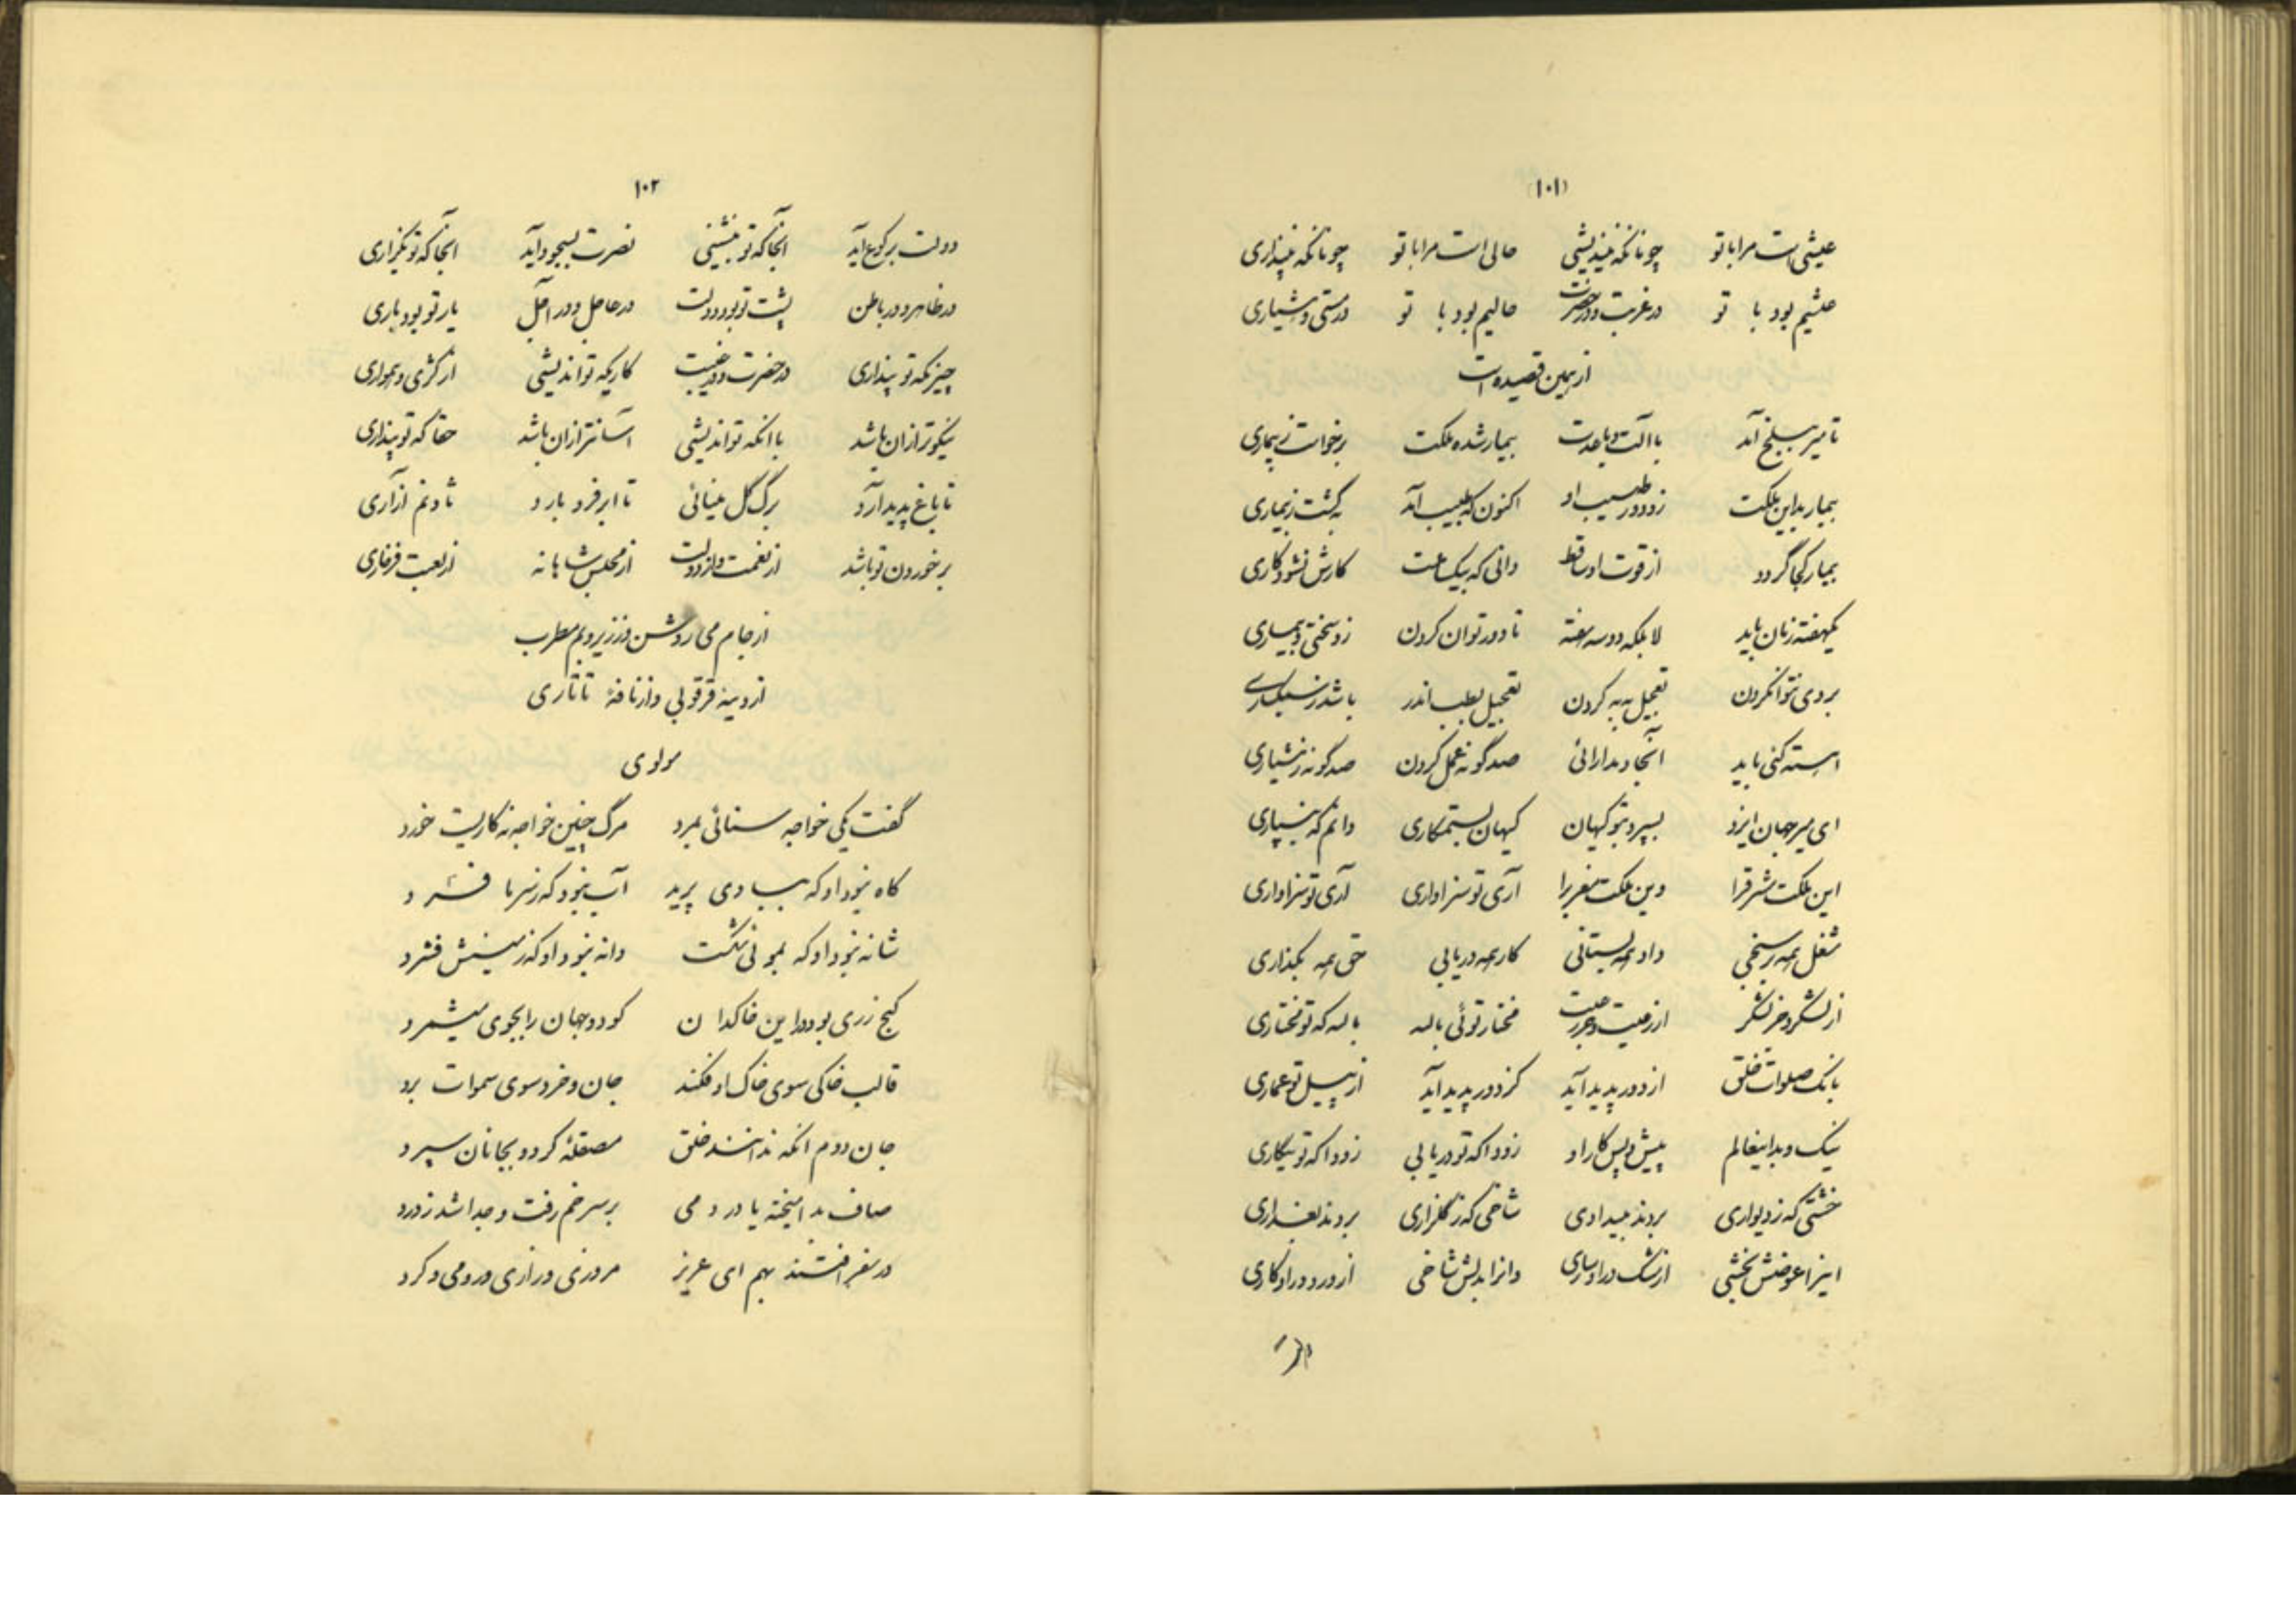 (۱۰۱)
عیشی است مرا با تو چونانکه نیندیشی حالی است مرا با تو چونانکه نپنداری
عیشم بود با تو در غربت و در حضرت حالیم بود با تو در مستی و هشیاری
از همین قصیده است
تا میر ببلخ آمد با آلت و با عدت بیمار شده ملکت برخواست ز بیماری
بیمار بد این ملکت زو دور طبیب او اکنون که طبیب آمد به گشت ز بیماری
بیمار کجا گردد از قوت او ساقط دانی که بیک ساعت کارش نشود کاری
یکهفته زمان باید لا بلکه دو سه هفته تا دور توان کردن زو سختی و بیماری
بر وی نتوان کردن تعجیل به به کردن تعجیل بطب اندر باشد ز سبکساری
آهسته کنی باید آنجا و مدارائی صد گونه عمل کردن صد گونه ز هشیاری
ای میر جهان ایزد بسپرد بتو کیهان کیهان بستمکاری دانم که نسپاری
این ملکت مشرق را وین ملکت مغرب را آری تو سزاواری آری تو سزاواری
شغل همه بر سنجی داد همه بستانی کار همه دریابی حق همه بگذاری
از لشکر و جز لشکر از رعیت و جز رعیت مختار توئی بالله بالله که تو مختاری
بانک صلوات خلق از دور پدید آید کز دور پدید آید از پیل تو عماری
نیک و بد اینعالم پیش و پس کار او زودا که تو دریابی زودا که تو بنگاری
خشتی که ز دیواری بردند به بیدادی شاخی که ز گلزاری بردند بغداری
اینرا عوضش بخشی وانرا بدلش شاخی
۱۰۲
دولت برکوع آید آنجا که تو بنشینی نصرت بسجود آید آنجا که تو بگذاری
در ظاهر و در باطن پشت تو بود دولت در عاجل و در آجل یار تو بود باری
چیزیکه تو پنداری در حضرت و در غیبت کاریکه تو اندیشی از کژی و همواری
نیکوتر از آن باشد با انکه تو اندیشی آسانتر از آن باشد حقا که تو پنداری
تا باغ پدید آرد برگ گل مینائی تا ابر فرو بارد ثاد و نم آزاری
برخوردن تو باشد از نعمت و از دولت از مجلس شاهانه از لعبت فرخاری
از جام می روشن وز زیر و بم مطرب
از دیبه قرقوبی وز نافه تاتاری
مولوی
گفت یکی خواجه سنائی بمرد مرگ چنین خواجه نه کاریست خورد
کاه نبود او که ببادی پرید آب نبود که ز سرما فسرد
شانه نبود او که بموئی شکست دانه نبود او که زمینش فشرد
گنج زری بود در این خاکدان کو دو جهان را بجوی میشمرد
قالب خاکی سوی خاک او فکند جان و خرد سوی سموات برد
جان دوم انکه ندانند خلق مصقلهٔ کرد و بجانان سپرد
صاف بد آمیخته با درد می بر سر خم رفت و جدا شد ز درد
در سفر افتند بهم ای عزیز مروزی و رازی و رومی و کرد